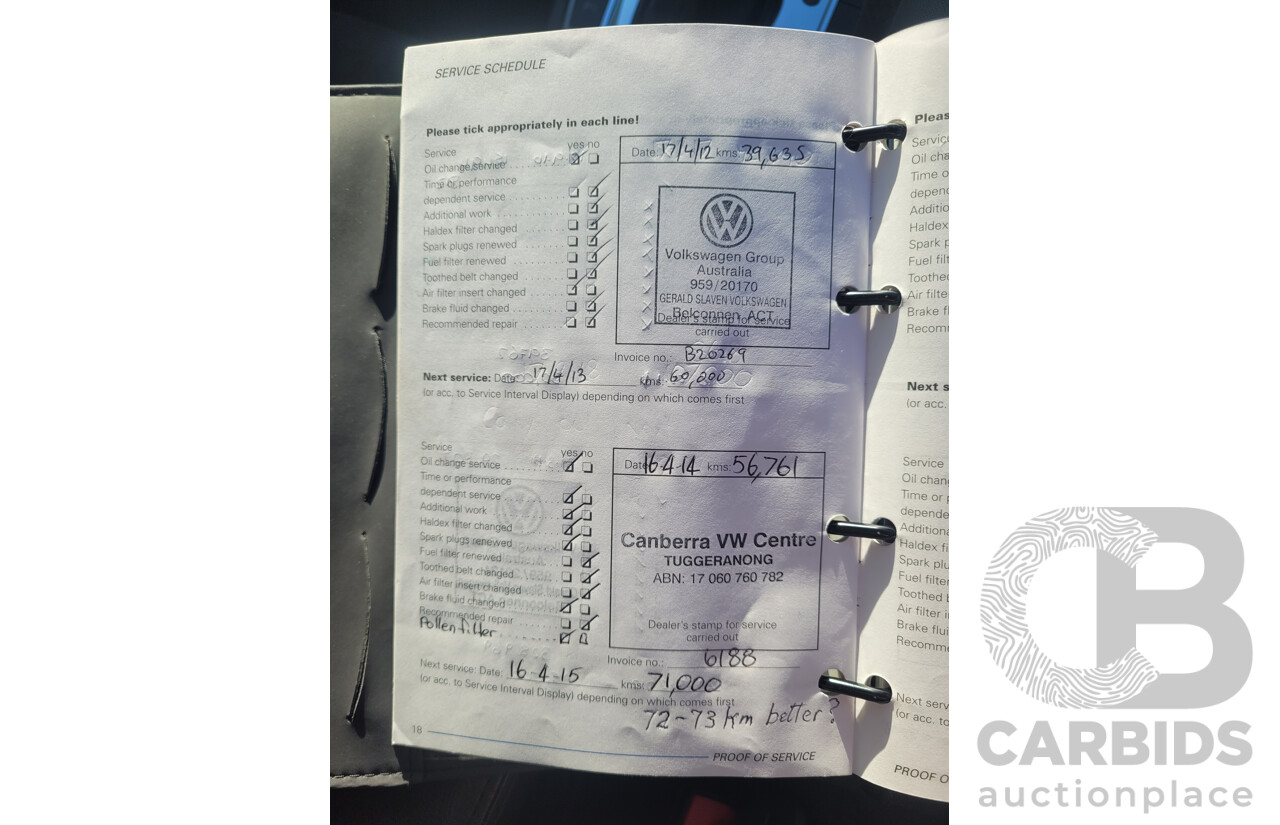 SERVICE SCHEDULE
Please tick appropriately in each line!
yes no
Service
Oil change service
Time or performance
dependent service
Additional work
Haldex filter changed
Spark plugs renewed
Fuel filter renewed
Toothed belt changed
Air filter insert changed
Brake fluid changed
Recommended repair
Date: 17/4/12 kms: 39,635
VW
Volkswagen Group
Australia
959/20170
GERALD SLAVEN VOLKSWAGEN
Belconnen, ACT
Dealer's stamp for service
carried out
Invoice no.: B20269
Next service: Date: 17/4/13 kms:
(or acc. to Service Interval Display) depending on which comes first
yes no
Service
Oil change service
Time or performance
dependent service
Additional work
Haldex filter changed
Spark plugs renewed
Fuel filter renewed
Toothed belt changed
Air filter insert changed
Brake fluid changed
Recommended repair
Pollen filter
Date: 16-4-14 kms: 56,761
Canberra VW Centre
TUGGERANONG
ABN: 17 060 760 782
Dealer's stamp for service
carried out
Invoice no.: 6188
Next service: Date: 16-4-15 kms: 71,000
(or acc. to Service Interval Display) depending on which comes first
72-73 km better?
18
PROOF OF SERVICE
Pleas
Servic
Oil cha
Time o
depend
Additio
Haldex
Spark p
Fuel filt
Toothed
Air filte
Brake fl
Recomm
Next s
(or acc.
Service
Oil chan
Time or p
depende
Addition
Haldex fi
Spark plu
Fuel filter
Toothed b
Air filter i
Brake flui
Recomme
Next serv
(or acc. to
PROOF O
CB
CARBIDS
auctionplace